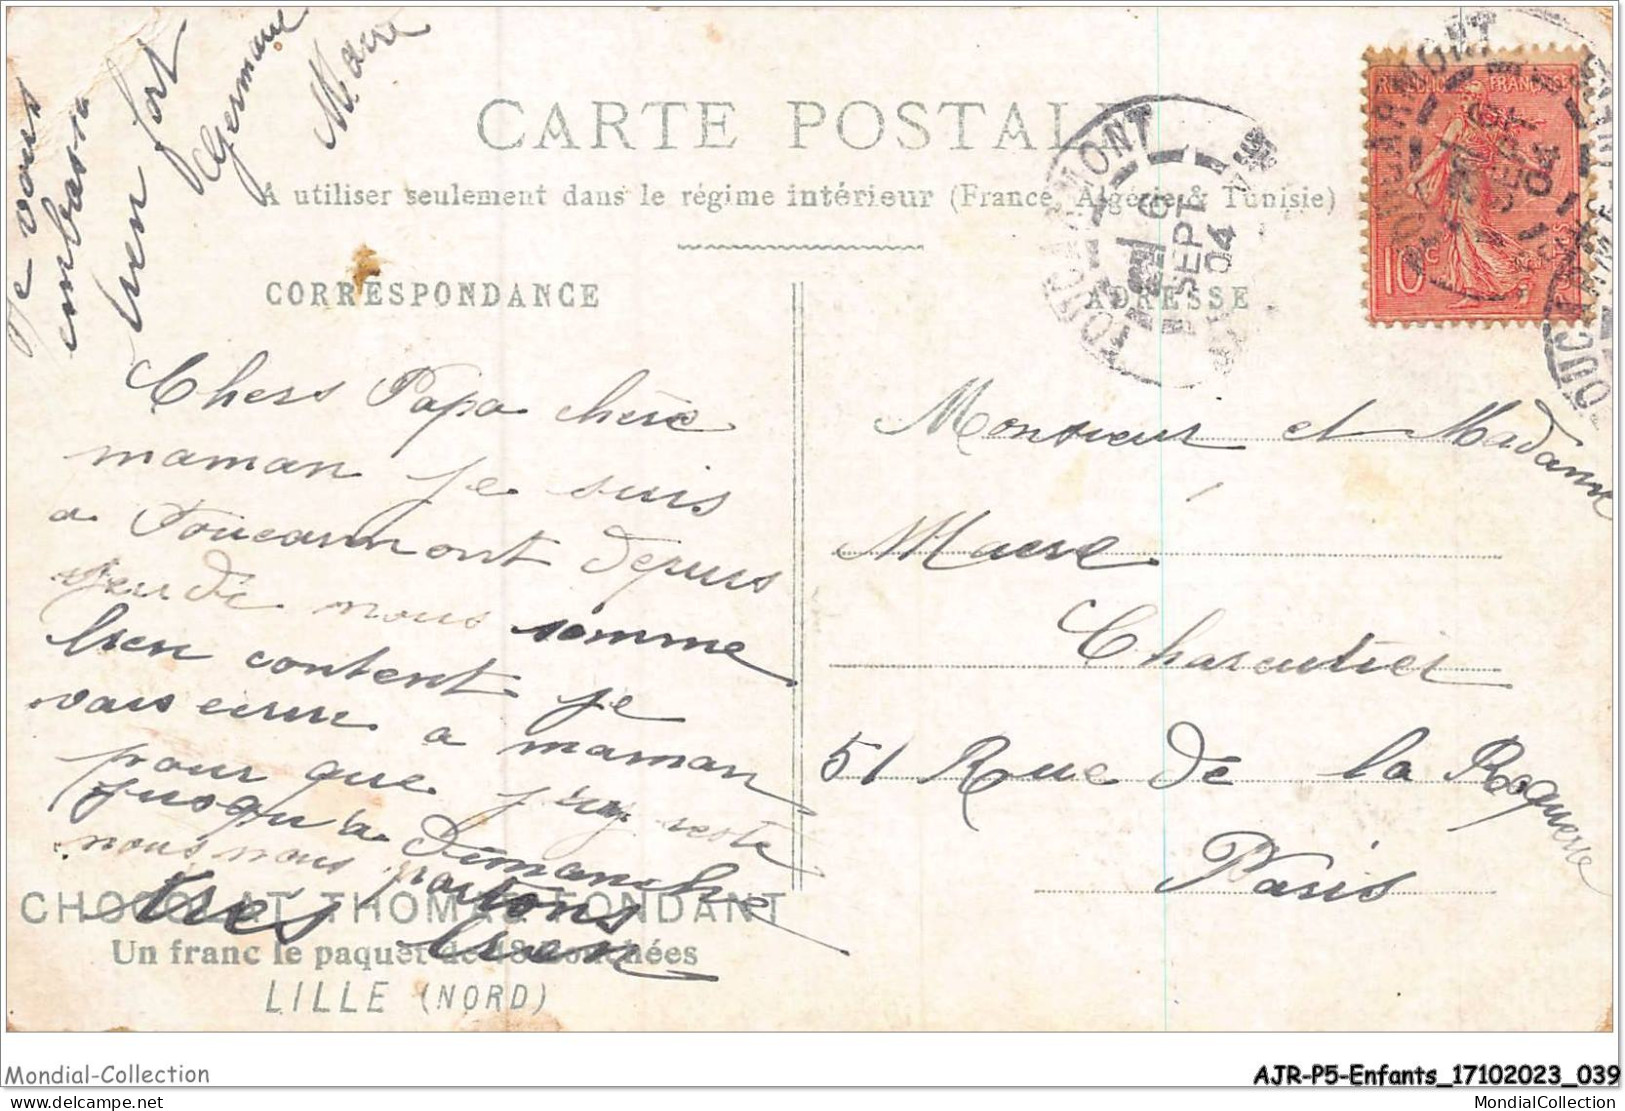 Je vous
embrasse
bien fort
Germaine
Macré
CARTE POSTALE
A utiliser seulement dans le régime intérieur (France, Algérie & Tunisie)
CORRESPONDANCE
ADRESSE
FOUCARMONT
6
SEPT
04
REPUBLIQUE FRANÇAISE
10c
Chers Papa chère
maman je suis
a Foucarmont depuis
jeudi nous somme
bien content je
vais ecrire a maman
pour que j'
reste
jusqu'a Dimanche
nous nous
partons
très bien
CHOCOLAT THOMAS FONDANT
Un franc le paquet de 48 bouchées
LILLE (NORD)
Monsieur et Madame
Macré
Charcutier
51 Rue de la Roquette
Paris
Mondial-Collection
AJR-P5-Enfants_17102023_039
MondialCollection